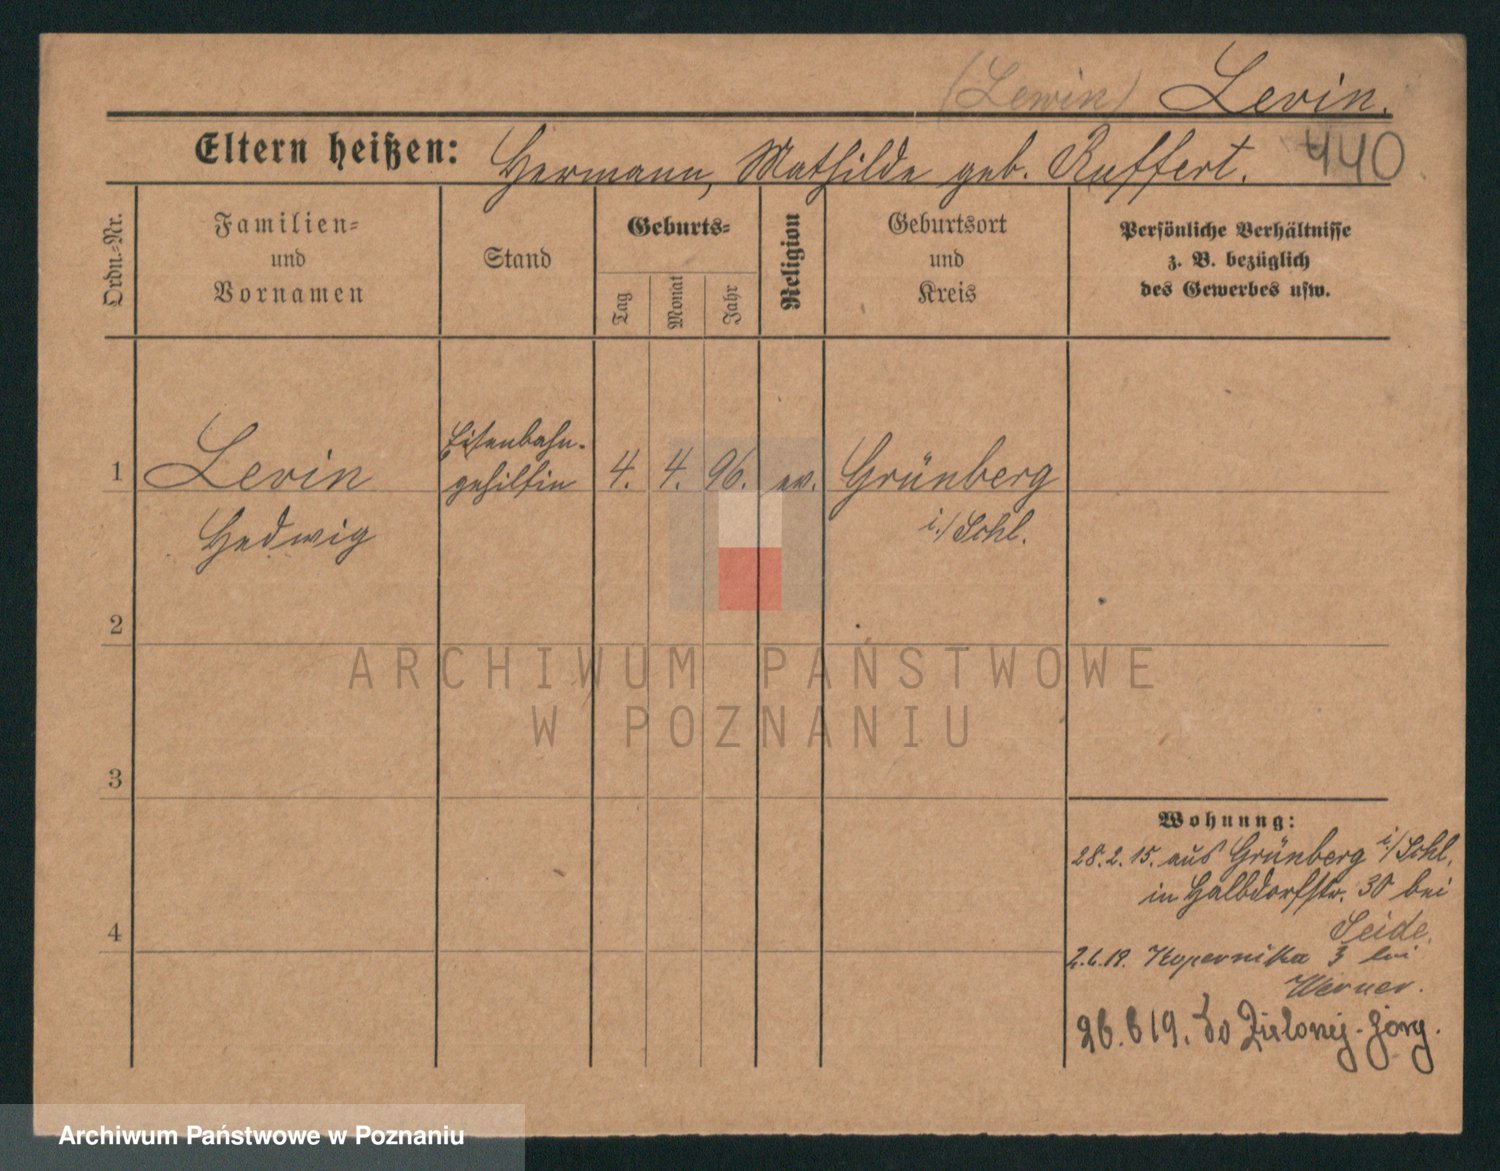 (Lewin) Levin.
Eltern heißen: Hermann, Mathilde geb. Ruffert. 440
Ordn.-Nr.
Familien-
und
Vornamen
Stand
Geburts-
Tag
Monat
Jahr
Religion
Geburtsort
und
Kreis
Persönliche Verhältnisse
z. B. bezüglich
des Gewerbes usw.
1 Levin Eisenbahn- 4. 4. 96. ev. Grünberg
gehilfin
Hedwig i./Schl.
2
3
4
Wohnung:
28.2.15. aus Grünberg i./Schl.
in Halbdorfstr. 30 bei
Seide.
2.6.19. Kopernika 3 bei
Werner.
26.6 19. do Zielonej-Góry.
ARCHIWUM PAŃSTWOWE
W POZNANIU
Archiwum Państwowe w Poznaniu